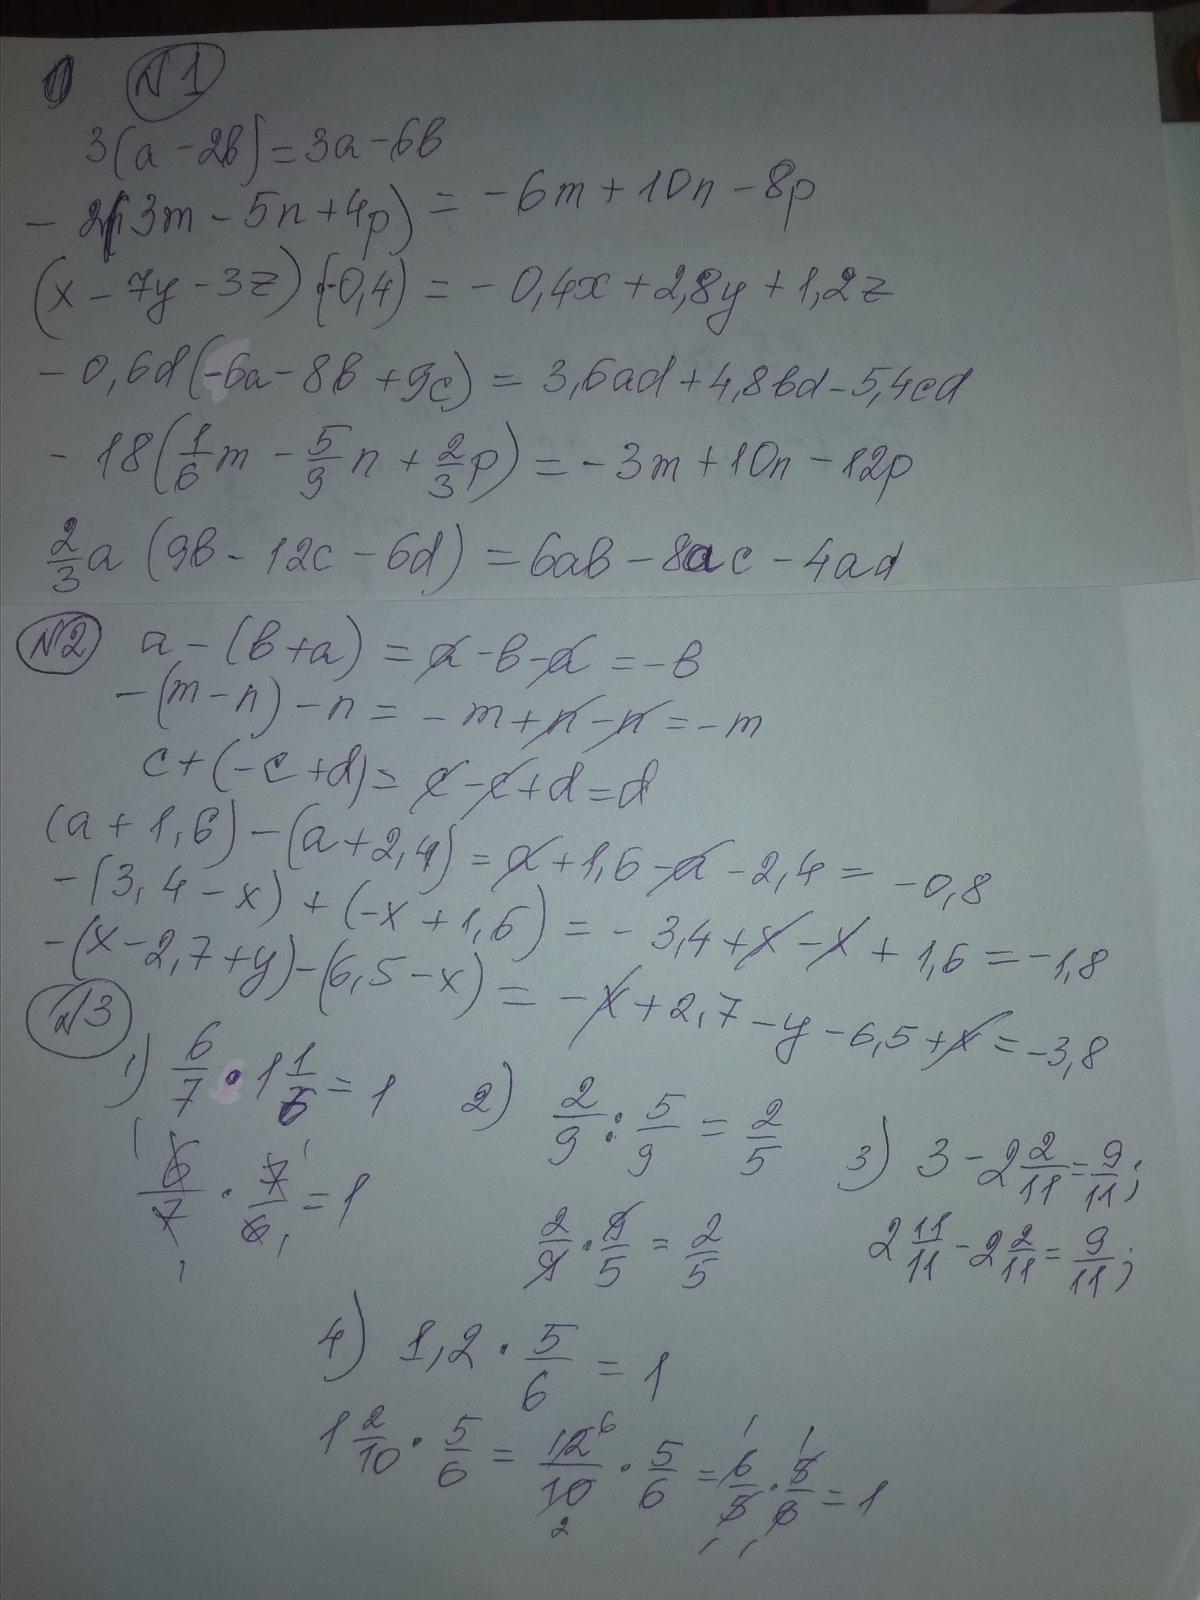 N1
3(a - 2b) = 3a - 6b
- 2(3m - 5n + 4p) = - 6m + 10n - 8p
(x - 7y - 3z) · (-0,4) = - 0,4x + 2,8y + 1,2z
- 0,6d(-6a - 8b + 9c) = 3,6ad + 4,8bd - 5,4cd
- 18(1/6 m - 5/9 n + 2/3 p) = - 3m + 10n - 12p
2/3 a (9b - 12c - 6d) = 6ab - 8ac - 4ad
N2 a - (b + a) = a - b - a = - b
- (m - n) - n = - m + n - n = - m
c + (- c + d) = c - c + d = d
(a + 1,6) - (a + 2,4) = a + 1,6 - a - 2,4 = - 0,8
- (3,4 - x) + (-x + 1,6) = - 3,4 + x - x + 1,6 = -1,8
- (x - 2,7 + y) - (6,5 - x) = - x + 2,7 - y - 6,5 + x = -3,8
N3
1) 6/7 · 1 1/6 = 1 2) 2/9 : 5/9 = 2/5 3) 3 - 2 2/11 = 9/11;
6/7 · 7/6 = 1 2/9 · 9/5 = 2/5 2 11/11 - 2 2/11 = 9/11;
4) 1,2 · 5/6 = 1
1 2/10 · 5/6 = 12/10 · 5/6 = 6/5 · 5/6 = 1